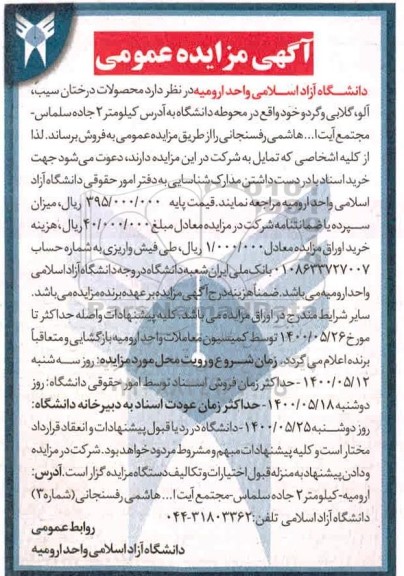 آگهی مزایده عمومی
دانشگاه آزاد اسلامی واحد ارومیه در نظر دارد محصولات درختان سیب،
آلو، گلابی و گردو خود واقع در محوطه دانشگاه به آدرس کیلومتر ۲ جاده سلماس-
مجتمع آیت ا... هاشمی رفسنجانی را از طریق مزایده عمومی به فروش برساند. لذا
از کلیه اشخاصی که تمایل به شرکت در این مزایده دارند، دعوت می شود جهت
خرید اسناد با در دست داشتن مدارک شناسایی به دفتر امور حقوقی دانشگاه آزاد
اسلامی واحد ارومیه مراجعه نمایند. قیمت پایه ۳۹۵/۰۰۰/۰۰۰ ریال، میزان
سپرده یا ضمانتنامه شرکت در مزایده معادل مبلغ ۴۰/۰۰۰/۰۰۰ ریال، هزینه
خرید اوراق مزایده معادل ۱/۰۰۰/۰۰۰ ریال، طی فیش واریزی به شماره حساب
۰۱۰۸۶۳۳۷۲۷۰۰۷ بانک ملی ایران شعبه دانشگاه در وجه دانشگاه آزاد اسلامی
واحد ارومیه می باشد. ضمناً هزینه درج آگهی مزایده بر عهده برنده مزایده می باشد.
سایر شرایط مندرج در اوراق مزایده می باشد. کلیه پیشنهادات واصله حداکثر تا
مورخ ۱۴۰۰/۰۵/۲۶ توسط کمیسیون معاملات واحد ارومیه بازگشایی و متعاقباً
برنده اعلام می گردد. زمان شروع و رویت محل مورد مزایده: روز سه شنبه
۱۴۰۰/۰۵/۱۲- حداکثر زمان فروش اسناد توسط امور حقوقی دانشگاه: روز
دوشنبه ۱۴۰۰/۰۵/۱۸- حداکثر زمان عودت اسناد به دبیرخانه دانشگاه:
روز دوشنبه ۱۴۰۰/۰۵/۲۵- دانشگاه در رد یا قبول پیشنهادات و انعقاد قرارداد
مختار است و کلیه پیشنهادات مبهم و مشروط مردود خواهد بود. شرکت در مزایده
و دادن پیشنهاد به منزله قبول اختیارات و تکالیف دستگاه مزایده گزار است. آدرس:
ارومیه- کیلومتر ۲ جاده سلماس- مجتمع آیت ا... هاشمی رفسنجانی (شماره ۳)
دانشگاه آزاد اسلامی تلفن: ۳۱۸۰۳۳۶۲-۰۴۴
روابط عمومی
دانشگاه آزاد اسلامی واحد ارومیه